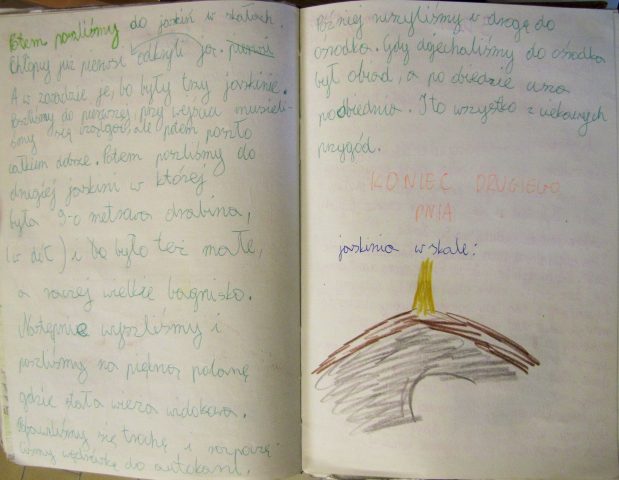 Potem poszliśmy do jaskiń w skałach.
Chłopcy już pierwsi odkryli ją.
A w zasadzie je, bo były trzy jaskinie.
Poszliśmy do pierwszej, przy wejściu musieli-
śmy się czołgać, ale potem poszło
całkiem dobrze. Potem poszliśmy do
drugiej jaskini w której
była 9-o metrowa drabina,
(w dół) i bo było też małe,
a raczej wielkie bagnisko.
Następnie wyszliśmy i
poszliśmy na piękną polanę
gdzie stała wieża widokowa.
Pobawiliśmy się trochę i rozpoczę-
liśmy wędrówkę do autokaru.
Później ruszyliśmy w drogę do
ośrodka. Gdy dojechaliśmy do ośrodka
był obiad, a po obiedzie cisza
poobiednia. I to wszystko z ciekawych
przygód.
KONIEC DRUGIEGO
DNIA
jaskinia w skale: